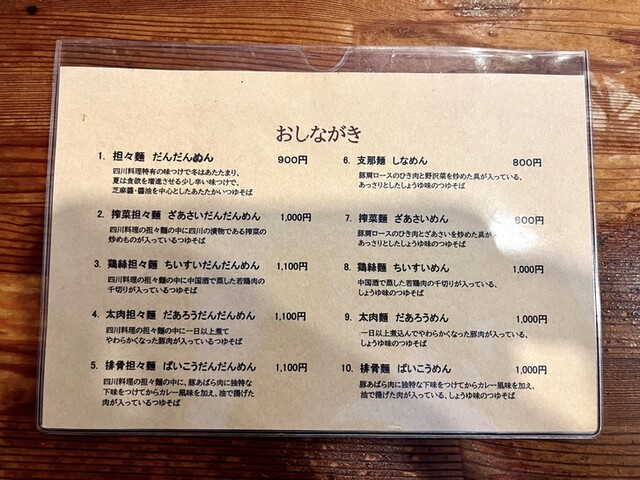 おしながき
1. 担々麺 だんだんめん 900円
四川料理特有の味つけで冬はあたたまり、
夏は食欲を増進させる少し辛い味つけで、
芝麻醤・醤油を中心としたあたたかいつゆそば
2. 搾菜担々麺 ざあさいだんだんめん 1,000円
四川料理の担々麺の中に四川の漬物である搾菜の
炒めものが入っているつゆそば
3. 鶏絲担々麺 ちいすいだんだんめん 1,100円
四川料理の担々麺の中に中国酒で蒸した若鶏肉の
千切りが入っているつゆそば
4. 太肉担々麺 だあろうだんだんめん 1,100円
四川料理の担々麺の中に一日以上煮て
やわらかくなった豚肉が入っているつゆそば
5. 排骨担々麺 ぱいこうだんだんめん 1,100円
四川料理の担々麺の中に、豚あばら肉に独特な
下味をつけてからカレー風味を加え、油で揚げた
肉が入っているつゆそば
6. 支那麺 しなめん 800円
豚肩ロースのひき肉と野沢菜を炒めた具が入っている、
あっさりとしたしょうゆ味のつゆそば
7. 搾菜麺 ざあさいめん 800円
豚肩ロースのひき肉とざあさいを炒めた具が
あっさりとしたしょうゆ味のつゆそば
8. 鶏絲麺 ちいすいめん 1,000円
中国酒で蒸した若鶏肉の千切りが入っている、
しょうゆ味のつゆそば
9. 太肉麺 だあろうめん 1,000円
一日以上煮込んでやわらかくなった豚肉が入っている、
しょうゆ味のつゆそば
10. 排骨麺 ぱいこうめん 1,000円
豚あばら肉に独特な下味をつけてからカレー風味を加え、
油で揚げた肉が入っている、しょうゆ味のつゆそば